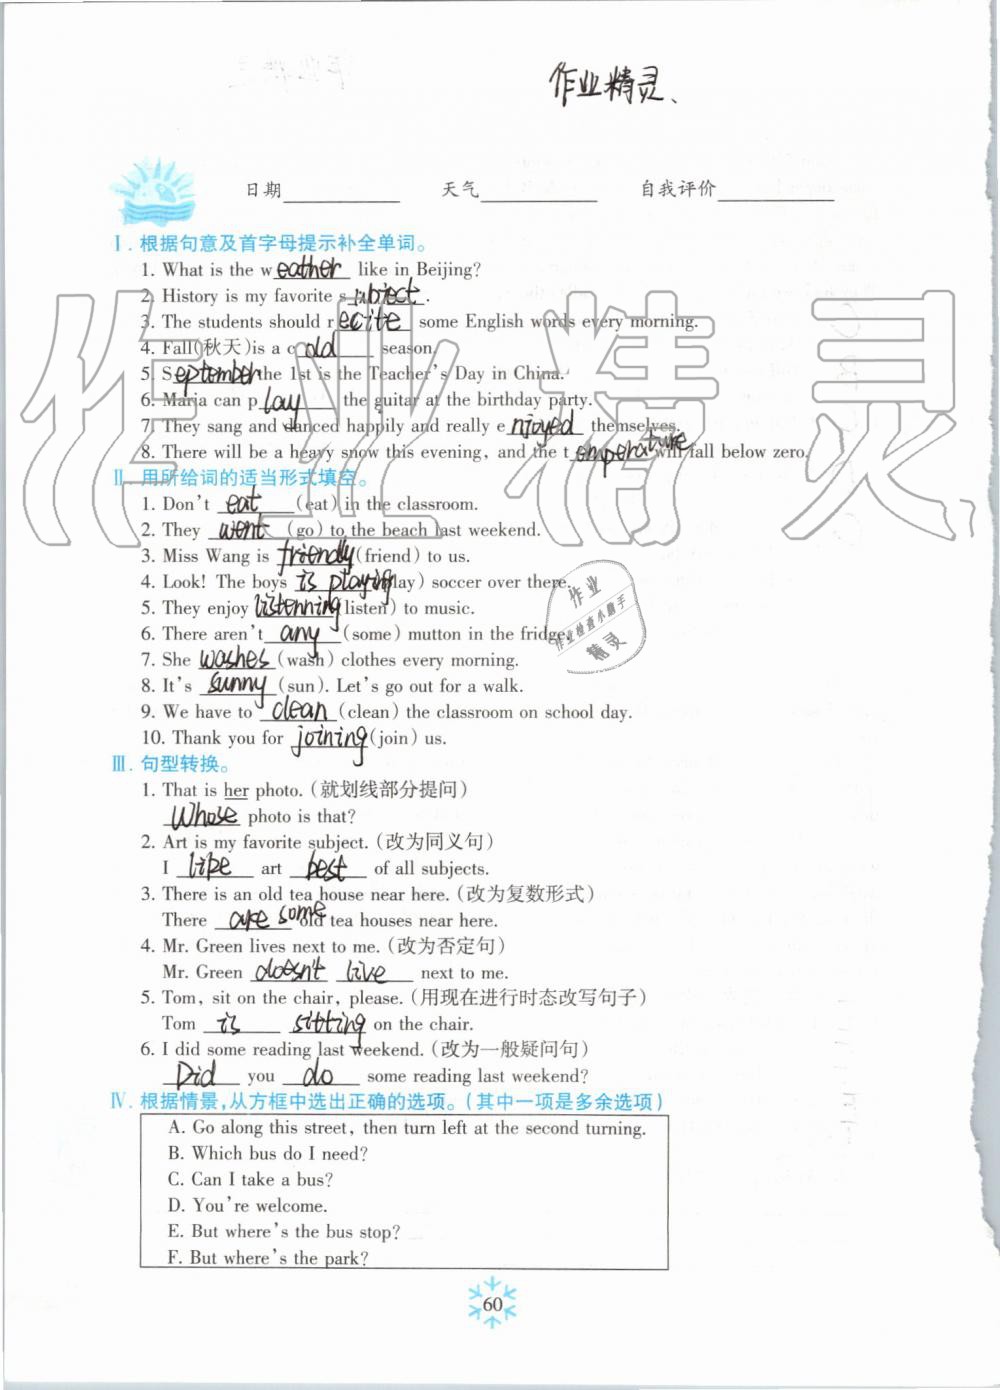 作业精灵、
日期 天气 自我评价
Ⅰ. 根据句意及首字母提示补全单词。
1. What is the weather like in Beijing?
2. History is my favorite subject.
3. The students should recite some English words every morning.
4. Fall(秋天)is a cold season.
5. September the 1st is the Teacher's Day in China.
6. Maria can play the guitar at the birthday party.
7. They sang and danced happily and really enjoyed themselves.
8. There will be a heavy snow this evening, and the temperature will fall below zero.
Ⅱ. 用所给词的适当形式填空。
1. Don't eat (eat) in the classroom.
2. They went (go) to the beach last weekend.
3. Miss Wang is friendly (friend) to us.
4. Look! The boys is playing (play) soccer over there.
5. They enjoy listenning (listen) to music.
6. There aren't any (some) mutton in the fridge.
7. She washes (wash) clothes every morning.
8. It's sunny (sun). Let's go out for a walk.
9. We have to clean (clean) the classroom on school day.
10. Thank you for joining (join) us.
Ⅲ. 句型转换。
1. That is her photo. (就划线部分提问)
Whose photo is that?
2. Art is my favorite subject. (改为同义句)
I like art best of all subjects.
3. There is an old tea house near here. (改为复数形式)
There are some old tea houses near here.
4. Mr. Green lives next to me. (改为否定句)
Mr. Green doesn't live next to me.
5. Tom, sit on the chair, please. (用现在进行时态改写句子)
Tom is sitting on the chair.
6. I did some reading last weekend. (改为一般疑问句)
Did you do some reading last weekend?
Ⅳ. 根据情景,从方框中选出正确的选项。(其中一项是多余选项)
A. Go along this street, then turn left at the second turning.
B. Which bus do I need?
C. Can I take a bus?
D. You're welcome.
E. But where's the bus stop?
F. But where's the park?
60
作业精灵
作业
作业检查小助手
精灵